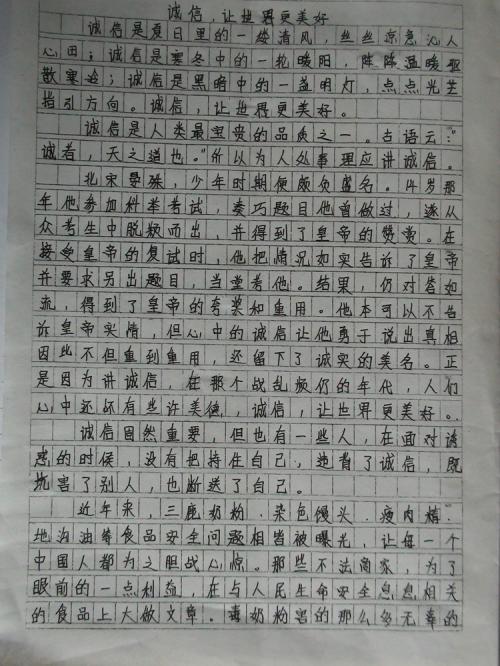 诚信,让世界更美好
诚信是夏日里的一缕清风,丝丝凉意沁人
心田;诚信是寒冬中的一轮暖阳,阵阵温暖驱
散寒冷;诚信是黑暗中的一盏明灯,点点光芒
指引方向。诚信,让世界更美好。
诚信是人类最宝贵的品质之一。古语云:“
诚者,天之道也。”所以为人处事理应讲诚信。
北宋晏殊,少年时期便颇负盛名。14岁那
年他参加科举考试,奏巧题目他曾做过,遂从
众考生中脱颖而出,并得到了皇帝的赞赏。在
接受皇帝的复试时,他把情况如实告诉了皇帝
并要求另出题目,当堂考他。结果,仍对答如
流,得到了皇帝的夸奖和重用。他本可以不告
诉皇帝实情,但心中的诚信让他勇于说出真相
因此不但重到重用,还留下了诚实的美名。正
是因为讲诚信,在那个战乱频仍的年代,人们
心中还怀有些许美德,诚信,让世界更美好。
诚信固然重要,但也有一些人,在面对诱
惑的时候,没有把持住自己,违背了诚信,既
坑害了别人,也断送了自己。
近年来,三鹿奶粉、染色馒头、瘦肉精、
地沟油等食品安全问题相皆被曝光,让每一个
中国人都为之胆战心惊。那些不法商家,为了
眼前的一点利益,在与人民生命安全息息相关
的食品上大做文章。毒奶粉害的那么多无辜的